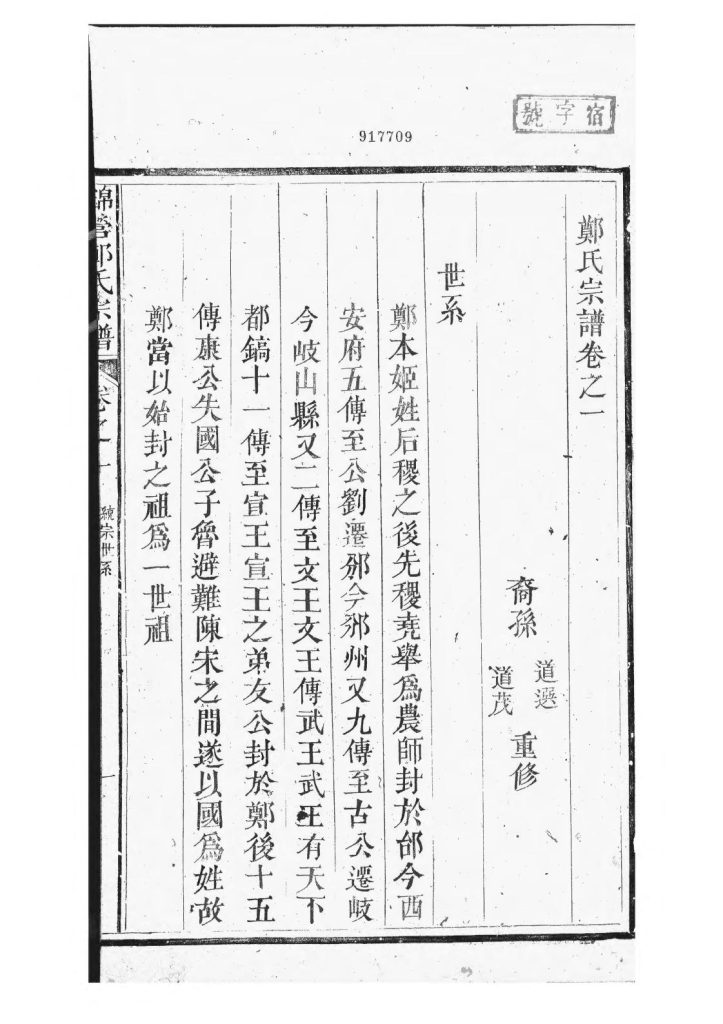 宿字號
917709
鄭氏宗譜卷之一
裔孫
道選
道茂
重修
世系
鄭本姬姓后稷之後先稷堯舉爲農師封於邰今西
安府五傳至公劉遷邠今邠州又九傳至古公遷岐
今岐山縣又二傳至文王文王傳武王武王有天下
都鎬十一傳至宣王宣王之弟友公封於鄭後十五
傳康公失國公子魯避難陳宋之間遂以國爲姓故
鄭當以始封之祖爲一世祖
錦營鄭氏宗譜
卷之一
號宗世系
一